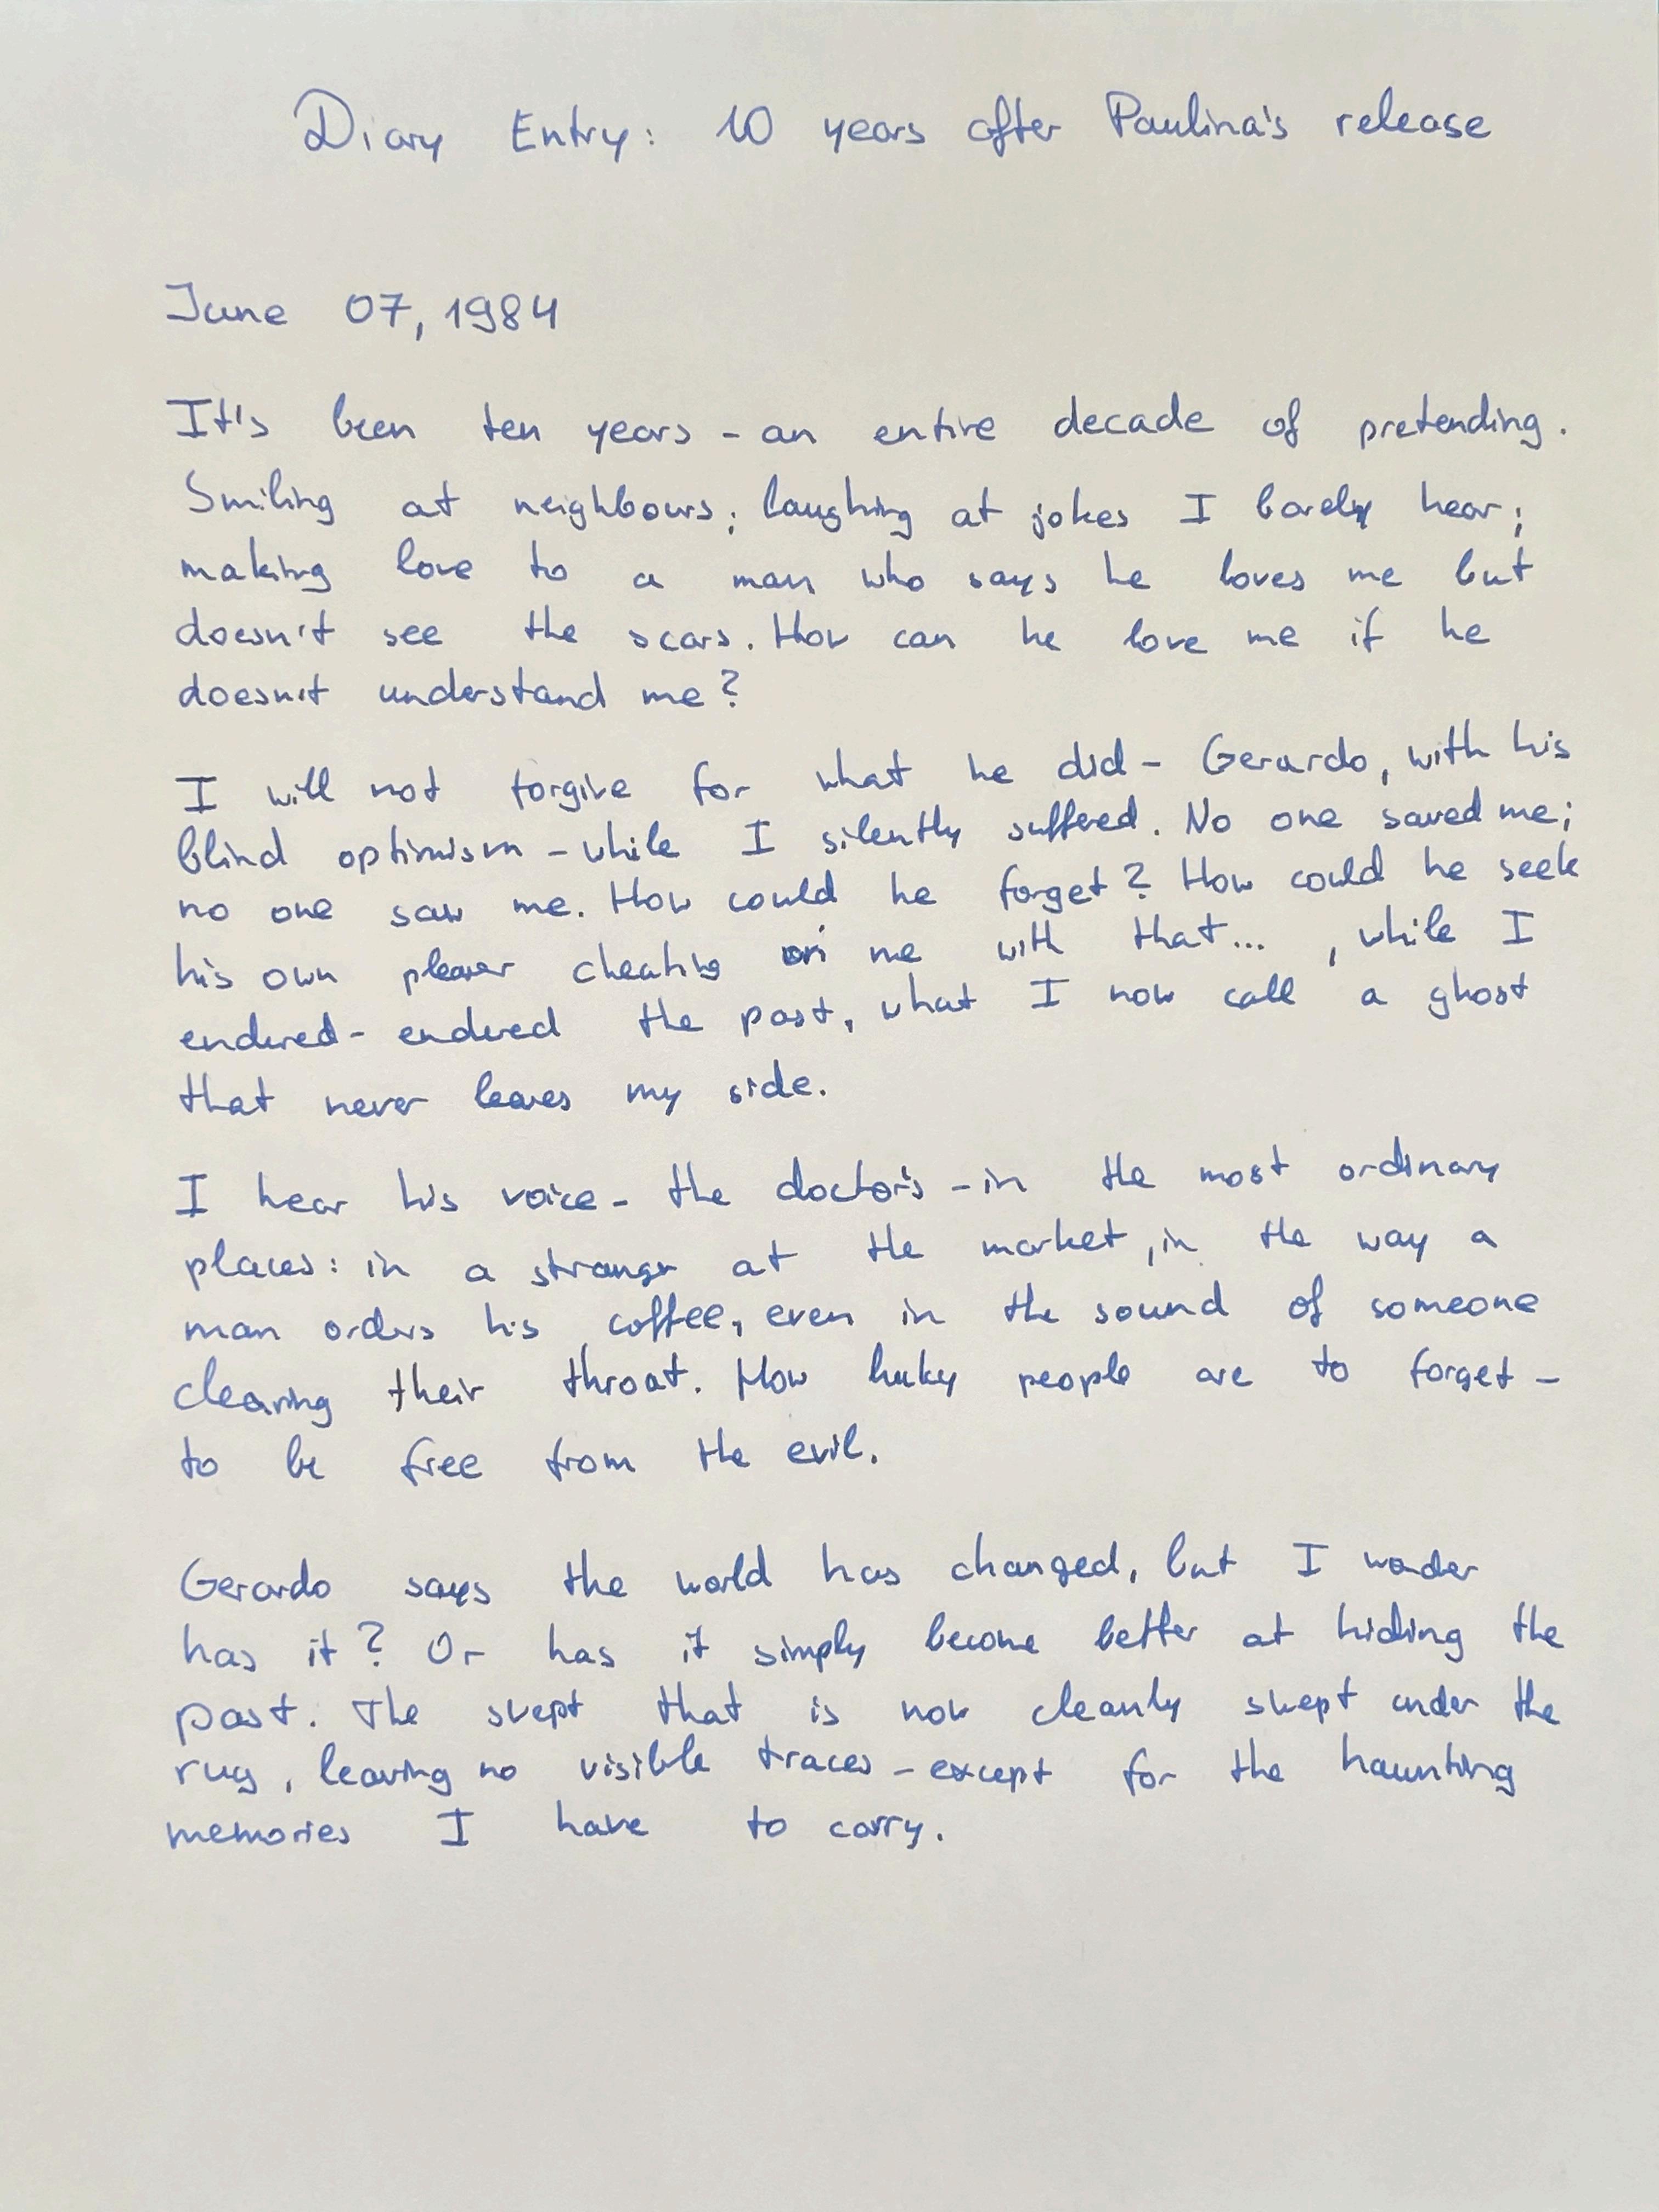 Diary Entry: 10 years after Paulina's release
June 07, 1984
It's been ten years - an entire decade of pretending.
Smiling at neighbours; laughing at jokes I barely hear;
making love to a man who says he loves me but
doesn't see the scars. How can he love me if he
doesn't understand me?
I will not forgive for what he did - Gerardo, with his
blind optimism - while I silently suffered. No one saved me;
no one saw me. How could he forget? How could he seek
his own cheating on me with that... , while I
endured - endured the past, what I now call a ghost
that never leaves my side.
I hear his voice - the doctor's - in the most ordinary
places: in a stranger at the market, in the way a
man orders his coffee, even in the sound of someone
clearing their throat. How lucky people are to forget -
to be free from the evil.
Gerardo says the world has changed, but I wonder
has it? Or has it simply become better at hiding the
past. The swept that is now cleanly swept under the
rug, leaving no visible traces - except for the haunting
memories I have to carry.